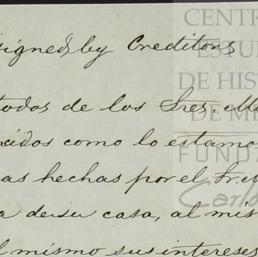 signed by Creditors
todos de los Sres. Me
como lo estamo
as hechas por el Sr. M
a de su casa, al mis
l mismo sus intereses
CENTR
ESTU
DE HIS
DE ME
FUND
Carlo